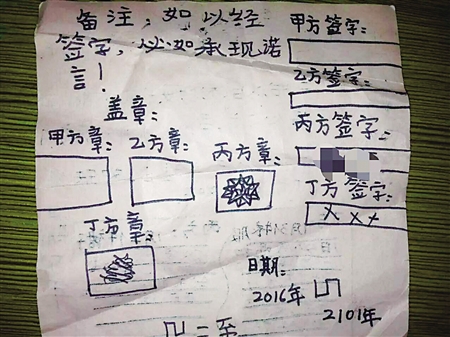 备注：如以经
签字，以如承现诺
言！
盖章：
甲方章：
乙方章：
丙方章：
丁方章：
甲方签字：
乙方签字：
丙方签字：
丁方签字：
×××
日期：
2016年
2101年